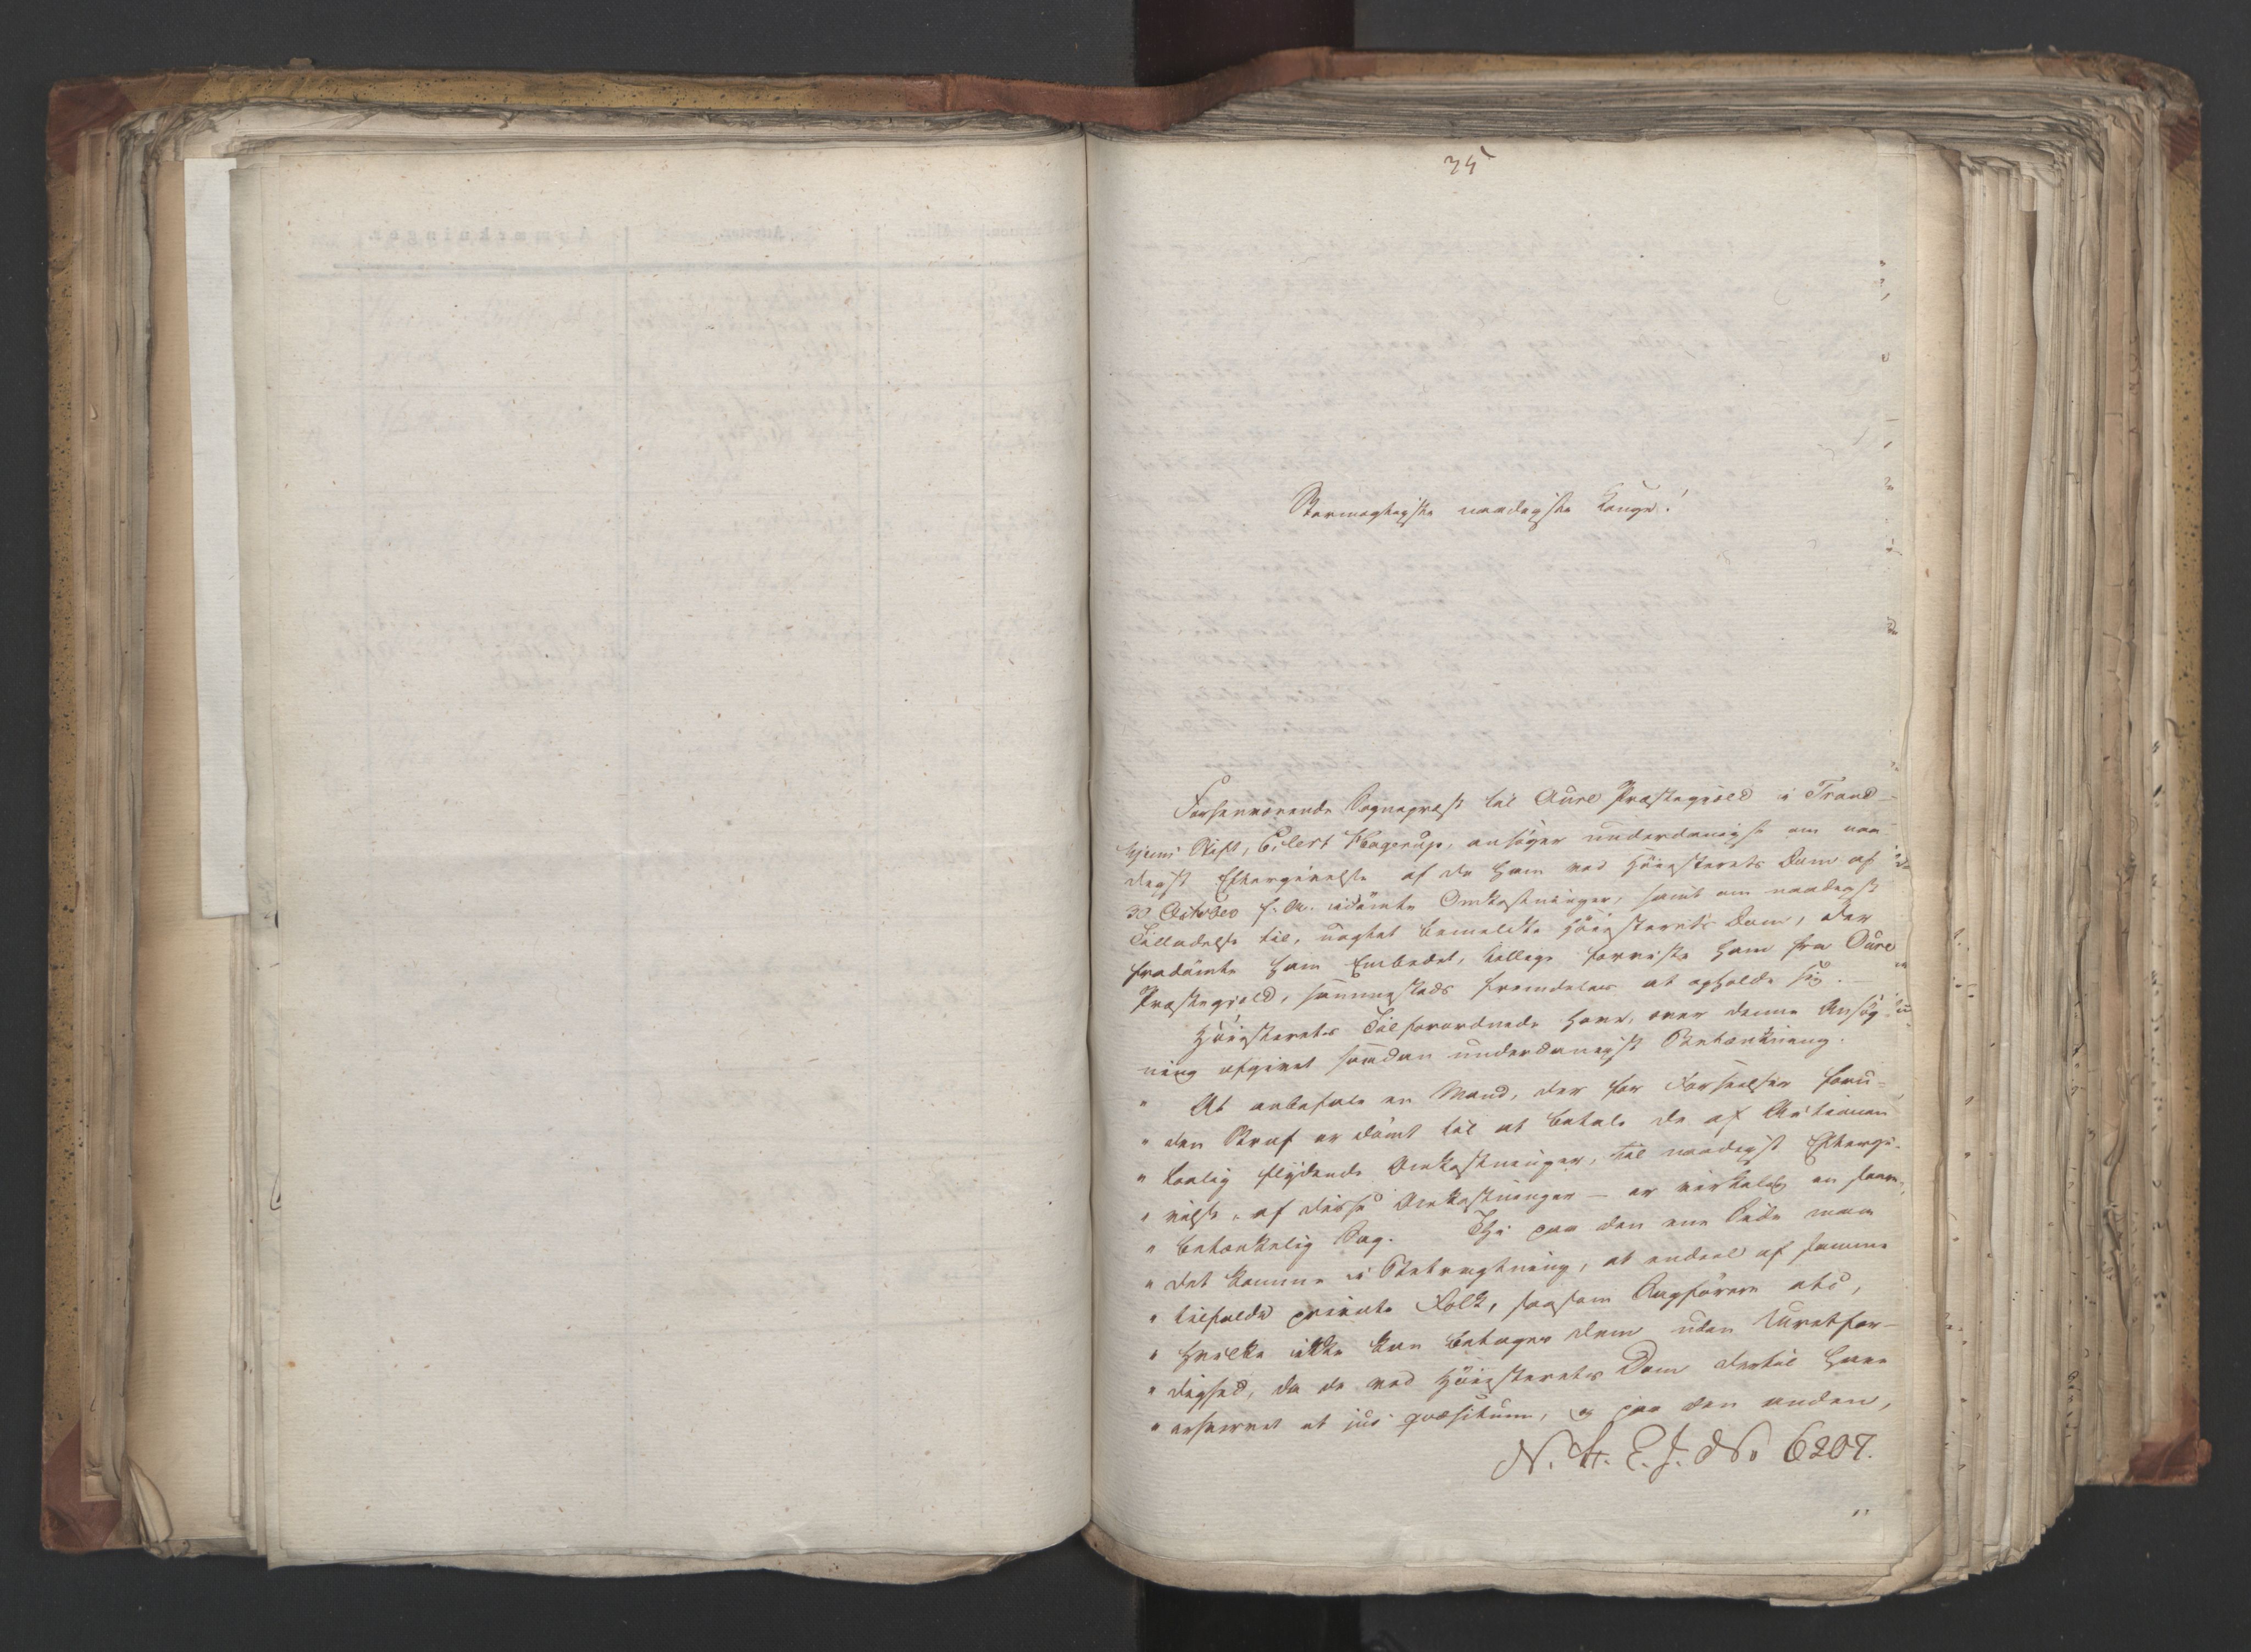 35
Stormægtigste naadigste Konge!
Forhenværende Sognepræst til Aure Præstegield i Trond-
hjems Stift, Eilert Hagerup, ansøger underdanigst om naa-
digst Eftergivelse af de ham ved Høiesterets Dom af
30 October f. A. idømte Omkostninger, samt om naadigst
Tilladelse til, uagtet bemeldte Høiesterets Dom, der
fradømte ham Embedet, tillige forviste ham fra Aure
Præstegield, sammesteds fremdeles at opholde sig.
Høiesterets Tilforordnede have, over denne Ansøg-
ning afgivet saadan underdanigst Betænkning.
" At anbefale en Mand, der for Forseelser foru-
" den Straf er dømt til at betale de af Actionen
" lovlig flydende Omkostninger, til naadigst Eftergi-
" velse af disse Omkostninger – er virkelig en saare
" betænkelig Sag. Thi paa den ene Side maa
" det komme i Betragtning, at endeel af samme
" tilfalde private Folk, saasom Sagførere etc,
" hvilke ikke kan betages dem uden Uretfær-
" dighed, da de ved Høiesterets Dom dertil have
" erhvervet et jus qvæsitum, og paa den anden,
N. A. E. J. No 6207.